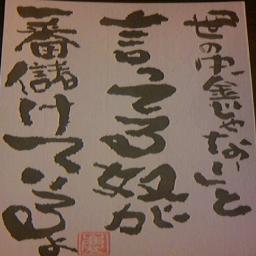 「世の中、金じゃない」と
言ってる奴が
一番儲けているよ